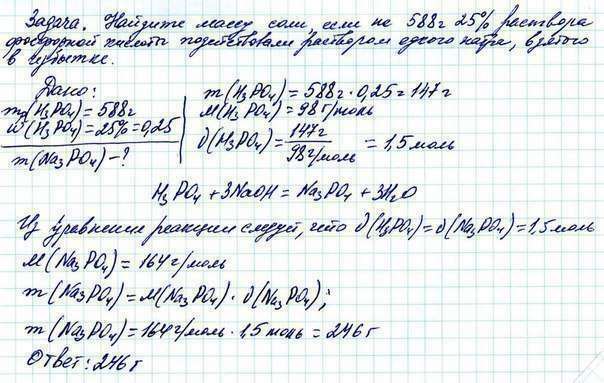 Задача. Найдите массу соли, если на 588г 25% раствора
фосфорной кислоты подействовали раствором едкого натра, взятого
в избытке.
Дано:
m(H₃PO₄) = 588г
ω(H₃PO₄) = 25% = 0,25
m(Na₃PO₄) - ?
m(H₃PO₄) = 588г · 0,25 = 147г
M(H₃PO₄) = 98г/моль
ν(H₃PO₄) = 147г / 98г/моль = 1,5моль
H₃PO₄ + 3NaOH = Na₃PO₄ + 3H₂O
Из уравнения реакции следует, что ν(H₃PO₄) = ν(Na₃PO₄) = 1,5моль
M(Na₃PO₄) = 164г/моль
m(Na₃PO₄) = M(Na₃PO₄) · ν(Na₃PO₄);
m(Na₃PO₄) = 164г/моль · 1,5моль = 246г
Ответ: 246г